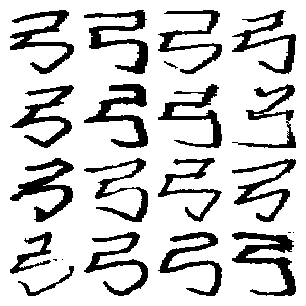 弓弓弓弓
弓弓弓弓
弓弓弓弓
弓弓弓弓